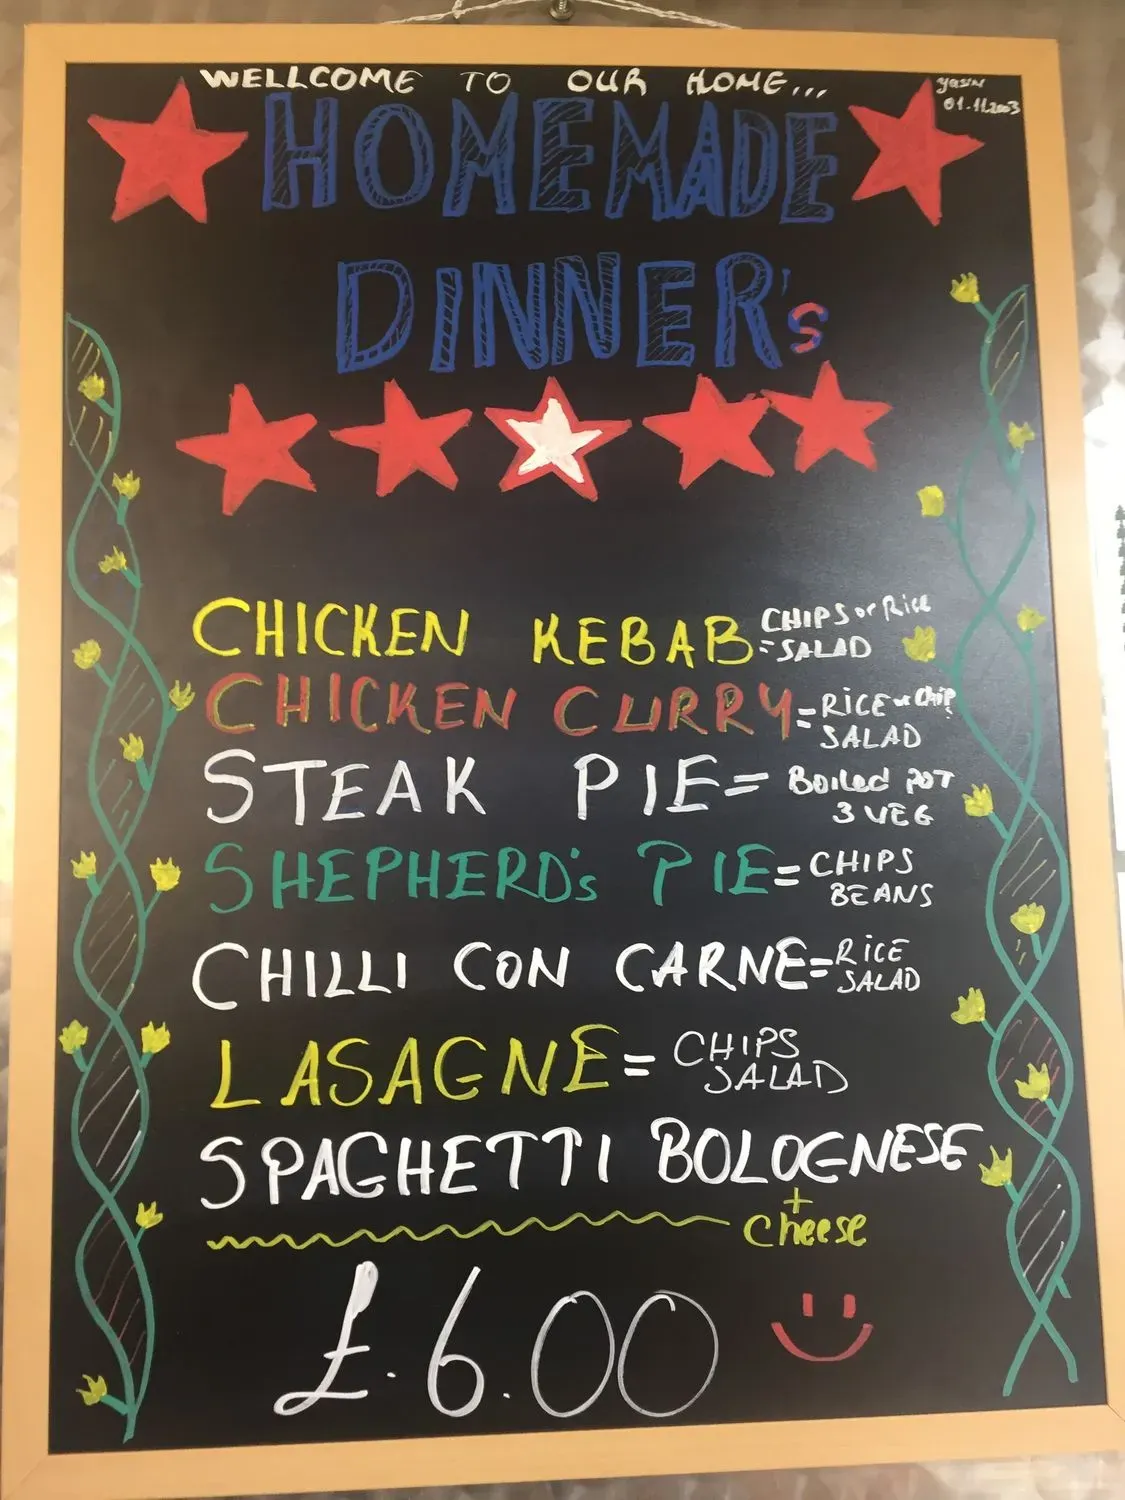 WELLCOME TO OUR HOME...
yasin
01.11.2003
HOMEMADE
DINNER's
CHICKEN KEBAB = CHIPS or Rice
SALAD
CHICKEN CURRY = RICE or CHIPS
SALAD
STEAK PIE = Boiled POT
3 VEG
SHEPHERD's PIE = CHIPS
BEANS
CHILLI CON CARNE = RICE
SALAD
LASAGNE = CHIPS
SALAD
SPAGHETTI BOLOGNESE
+
cheese
£.6.00